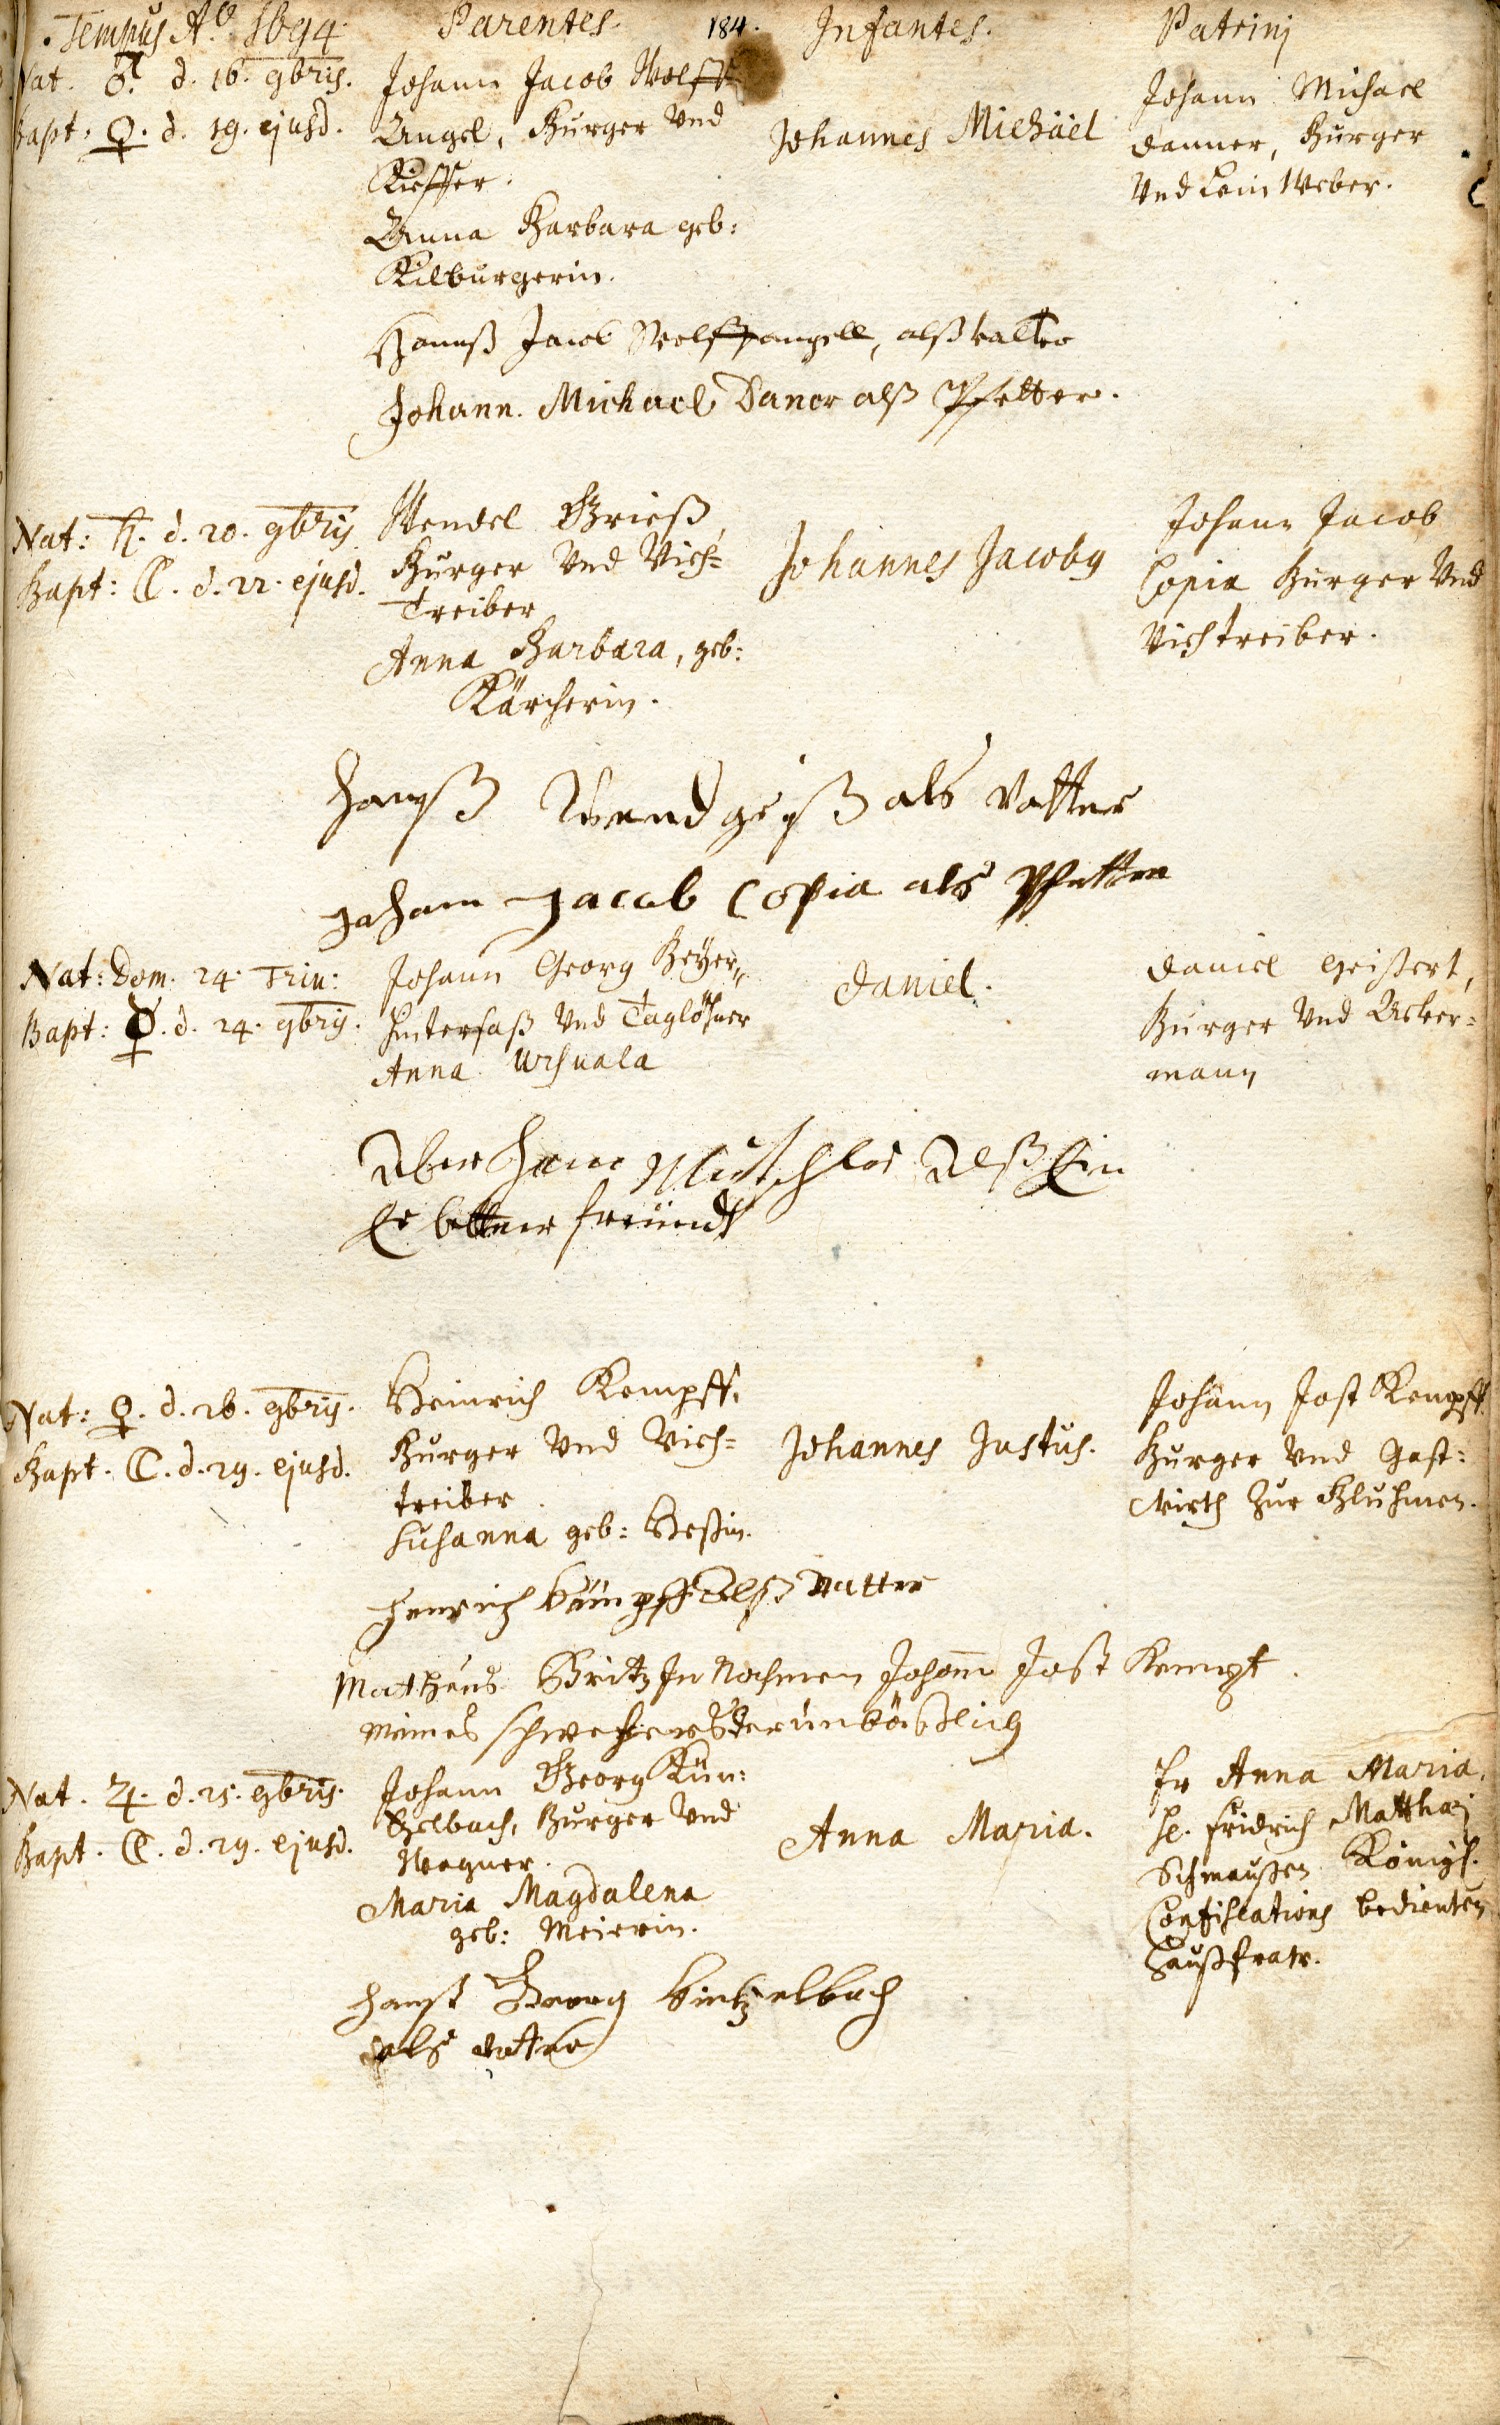 Tempus Aõ. 1694.
Parentes.
184.
Infantes.
Patrinj
Nat. ♂. d. 16. 9bris.
Bapt. ♀. d. 19. ejusd.
Johann Jacob Wolff
Angel, Burger Vnd
Kieffer.
Anna Barbara geb:
Kilburgerin.
Johannes Michäel
Johann Michael
Danner, Burger
Vnd Leinweber.
Hannß Jacob Wolffangell, alß vatter
Johann. Michael Daner alß Pfetter.
Nat: ♄. d. 20. 9bris
Bapt: ☾. d. 22. ejusd.
Wendel Grieß,
Burger Vnd Vieh-
Treiber
Anna Barbara, geb:
Kärcherin.
Johannes Jacoby
Johann Jacob
Copia Burger Vnd
Viehtreiber.
Hanß Wend als Vatter
Johann Jacob Copia als Pfetter
Nat: Dom. 24. Trin:
Bapt: ☿. d. 24. 9bris.
Johann Georg Beÿer,
Hintersaß Vnd Taglöhner
Anna Ursuala
Daniel.
Daniel Geißert,
Burger Vnd Acker-
mann
Mutschler Alß Ein
Er bettner freündt
Nat: ♀. d. 26. 9bris.
Bapt. ☾. d. 29. ejusd.
Heinrich Kempff,
Burger Vnd Vieh-
treiber.
Susanna geb: Heßin.
Johannes Justus.
Johann Jost Kempff
Burger Vnd Gast-
wirth Zur Bluhmen.
Henrich Kämpff Alß Vatter
Mattheus Britz In Nahmen Johann Jost Kempf
meines schwehers
Nat. ♃. d. 25. 9bris.
Bapt. ☾. d. 29. ejusd.
Johann Georg Kün-
tzelbach, Burger Vnd
Wagner.
Maria Magdalena
geb: Meierin.
Anna Maria.
Fr Anna Maria,
H. Fridrich Matthaej
Schmaußen Königl.
Confiscations bedienten
Haußfraw.
Hanß Georg Kintzelbach
als vatter